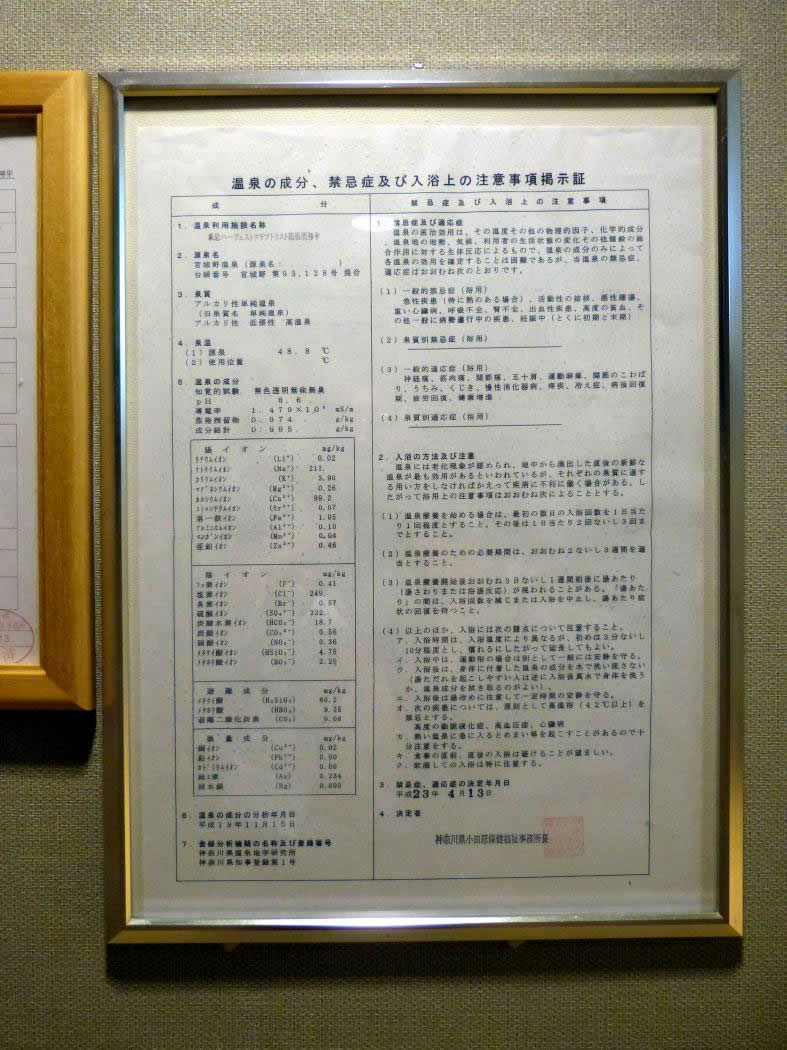 温泉の成分、禁忌症及び入浴上の注意事項掲示証
成 分
1. 温泉利用施設名称
2. 源泉名
宮城野温泉(源泉名: )
台帳番号 宮城野 第93,128号 混合
3. 泉質
アルカリ性単純温泉
(旧泉質名 単純温泉)
アルカリ性 低張性 高温泉
4. 泉温
(1)源泉 48.8 ℃
(2)使用位置 ℃
5 温泉の成分
知覚的試験 無色透明無味無臭
pH 8.6
導電率 mS/m
蒸発残留物 0.974 g/kg
成分総計 0.995 g/kg
陽イオン mg/kg
リチウムイオン (Li⁺) 0.02
ナトリウムイオン (Na⁺) 211.
カリウムイオン (K⁺) 3.90
マグネシウムイオン (Mg²⁺) 0.26
カルシウムイオン (Ca²⁺) 99.2
ストロンチウムイオン (Sr²⁺) 0.07
第一鉄イオン (Fe²⁺) 1.05
アルミニウムイオン (Al³⁺) 0.10
マンガンイオン (Mn²⁺) 0.04
亜鉛イオン (Zn²⁺) 0.46
陰イオン mg/kg
フッ素イオン (F⁻) 0.41
塩素イオン (Cl⁻) 249.
臭素イオン (Br⁻) 0.57
硫酸イオン (SO₄²⁻) 332.
炭酸水素イオン (HCO₃⁻) 18.7
炭酸イオン (CO₃²⁻) 0.56
硝酸イオン (NO₃⁻) 0.36
メタケイ酸イオン (HSiO₃⁻) 4.75
メタホウ酸イオン (BO₂⁻) 2.29
遊離成分 mg/kg
メタケイ酸 (H₂SiO₃) 60.2
メタホウ酸 (HBO₂) 9.35
遊離二酸化炭素 (CO₂) 0.06
微量成分 mg/kg
銅イオン (Cu²⁺) 0.02
鉛イオン (Pb²⁺) 0.00
カドミウムイオン (Cd²⁺) 0.00
総ヒ素 (As) 0.234
総水銀 (Hg) 0.000
6. 温泉の成分の分析年月日
平成19年11月15日
7. 登録分析機関の名称及び登録番号
神奈川県温泉地学研究所
神奈川県知事登録第1号
禁忌症及び入浴上の注意事項
1. 禁忌症及び適応症
温泉の医治効用は、その温度その他の物理的因子、化学的成分
、温泉地の地勢、気候、利用者の生活状態の変化その他諸般の総
合作用に対する生体反応によるもので、温泉の成分のみによって
各温泉の効用を確定することは困難であるが、当温泉の禁忌症、
適応症はおおむね次のとおりです。
(1)一般的禁忌症(浴用)
急性疾患(特に熱のある場合)、活動性の結核、悪性腫瘍、
重い心臓病、呼吸不全、腎不全、出血性疾患、高度の貧血、そ
の他一般に病勢進行中の疾患、妊娠中(とくに初期と末期)
(2)泉質別禁忌症(浴用)
(3)一般的適応症(浴用)
神経痛、筋肉痛、関節痛、五十肩、運動麻痺、関節のこわば
り、うちみ、くじき、慢性消化器病、痔疾、冷え症、病後回復
期、疲労回復、健康増進
(4)泉質別適応症(浴用)
2. 入浴の方法及び注意
温泉には老化現象が認められ、地中から湧出した直後の新鮮な
温泉が最も効用があるといわれているが、それぞれの泉質に適す
る用い方をしなければかえって疾病に不利に働く場合がある。し
たがって浴用上の注意事項はおおむね次によることとする。
(1)温泉療養を始める場合は、最初の数日の入浴回数を1日当た
り1回程度とすること。その後は1日当たり2回ないし3回ま
でとすること。
(2)温泉療養のための必要期間は、おおむね2ないし3週間を適
当とすること。
(3)温泉療養開始後おおむね3日ないし1週間前後に湯あたり
(湯さわりまたは浴湯反応)が現われることがある。「湯あた
り」の間は、入浴回数を減じまたは入浴を中止し、湯あたり症
状の回復を待つこと。
(4)以上のほか、入浴には次の諸点について注意すること。
ア、入浴時間は、入浴温度により異なるが、初めは3分ないし
10分程度とし、慣れるにしたがって延長してもよい。
イ、入浴中は、運動浴の場合は別として一般には安静を守る。
ウ、入浴後は、身体に付着した温泉の成分を水で洗い流さない
(湯ただれを起こしやすい人は逆に入浴後真水で身体を洗う
か、温泉成分を拭き取るのがよい)。
エ、入浴後は湯冷めに注意して一定時間の安静を守る。
オ、次の疾患については、原則として高温浴(42℃以上)を
禁忌とする。
高度の動脈硬化症、高血圧症、心臓病
カ、熱い温泉に急に入るとめまい等を起こすことがあるので十
分注意をする。
キ、食事の直前、直後の入浴は避けることが望ましい。
ク、飲酒しての入浴は特に注意する。
3. 禁忌症、適応症の決定年月日
平成23年 4月13日
4 決定者
神奈川県小田原保健福祉事務所長